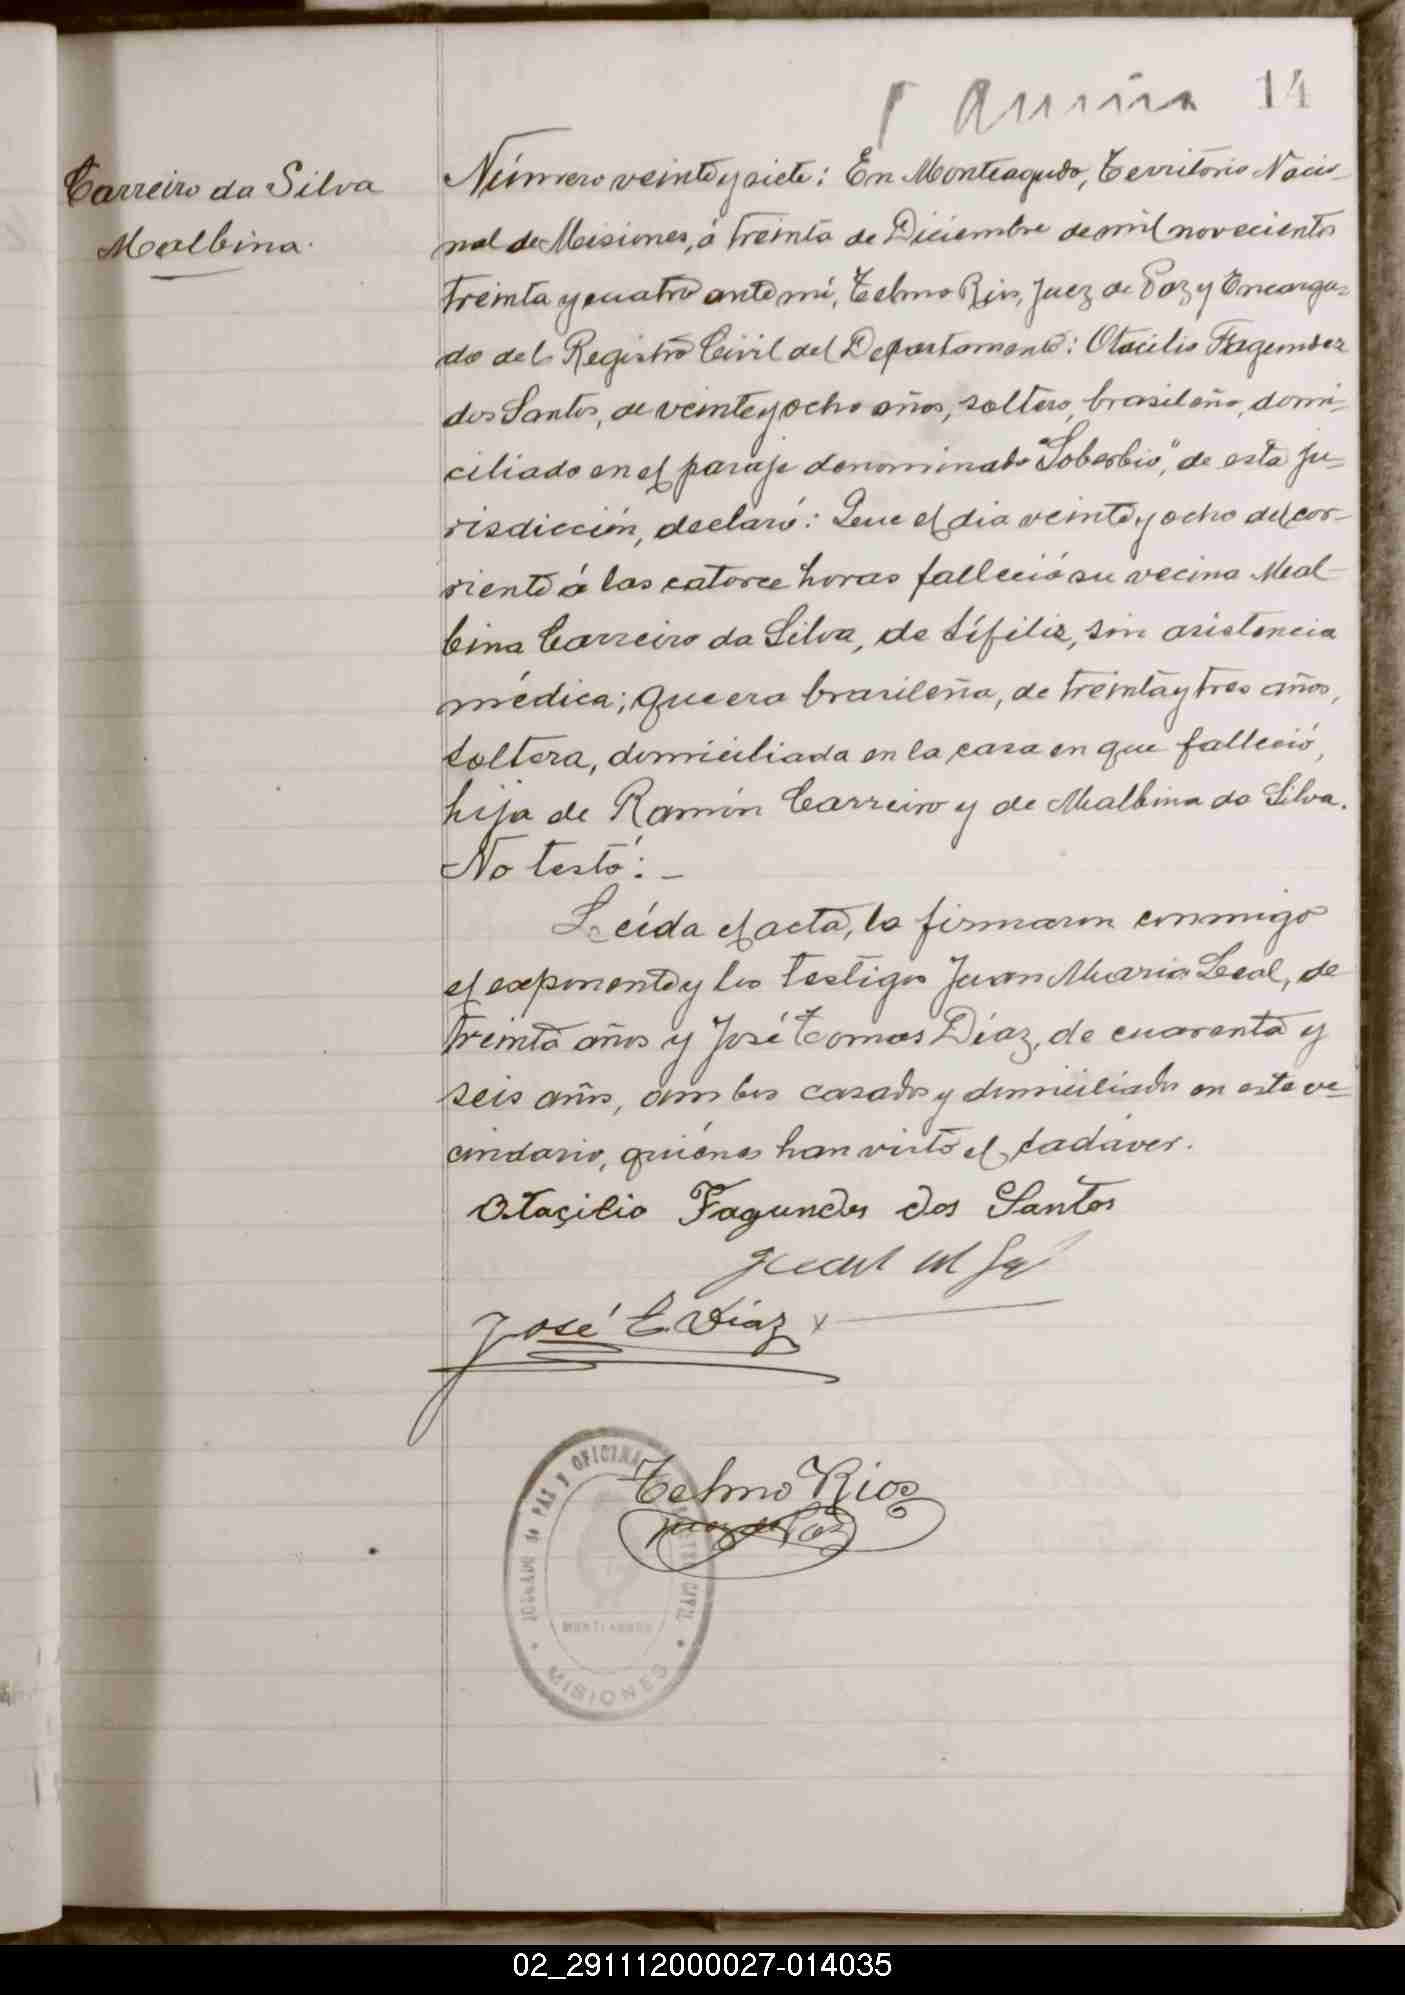 14
Carreiro da Silva
Malbina.
Número veinte y siete: En Monteagudo, Territorio Nacio-
nal de Misiones, á treinta de Diciembre de mil novecientos
treinta y cuatro ante mí, Telmo Rios, Juez de Paz y Encarga-
do del Registro Civil del Departamento: Otacilio Fagundez
dos Santos, de veinte y ocho años, soltero, brasileño, domi-
ciliado en el paraje denominado "Soberbio", de esta ju-
risdicción, declaró: Que el dia veinte y ocho del cor-
riente á las catorce horas falleció su vecina Mal-
bina Carreiro da Silva, de sífilis, sin asistencia
médica; que era brasileña, de treinta y tres años,
soltera, domiciliada en la casa en que falleció,
hija de Ramón Carreiro y de Malbina da Silva.
No testó: _
Leída el acta, la firmaron conmigo
el exponente y los testigos Juan Maria Leal, de
treinta años y José Tomas Díaz, de cuarenta y
seis años, ambos casados y domiciliados en este ve-
cindario, quiénes han visto el cadáver.
Otaçilio Fagundes dos Santos
José T. Díaz
Telmo Rios
Juez de Paz
JUZGADO de PAZ Y OFICINA REGISTRO CIVIL
MONTEAGUDO
MISIONES
02_291112000027-014035